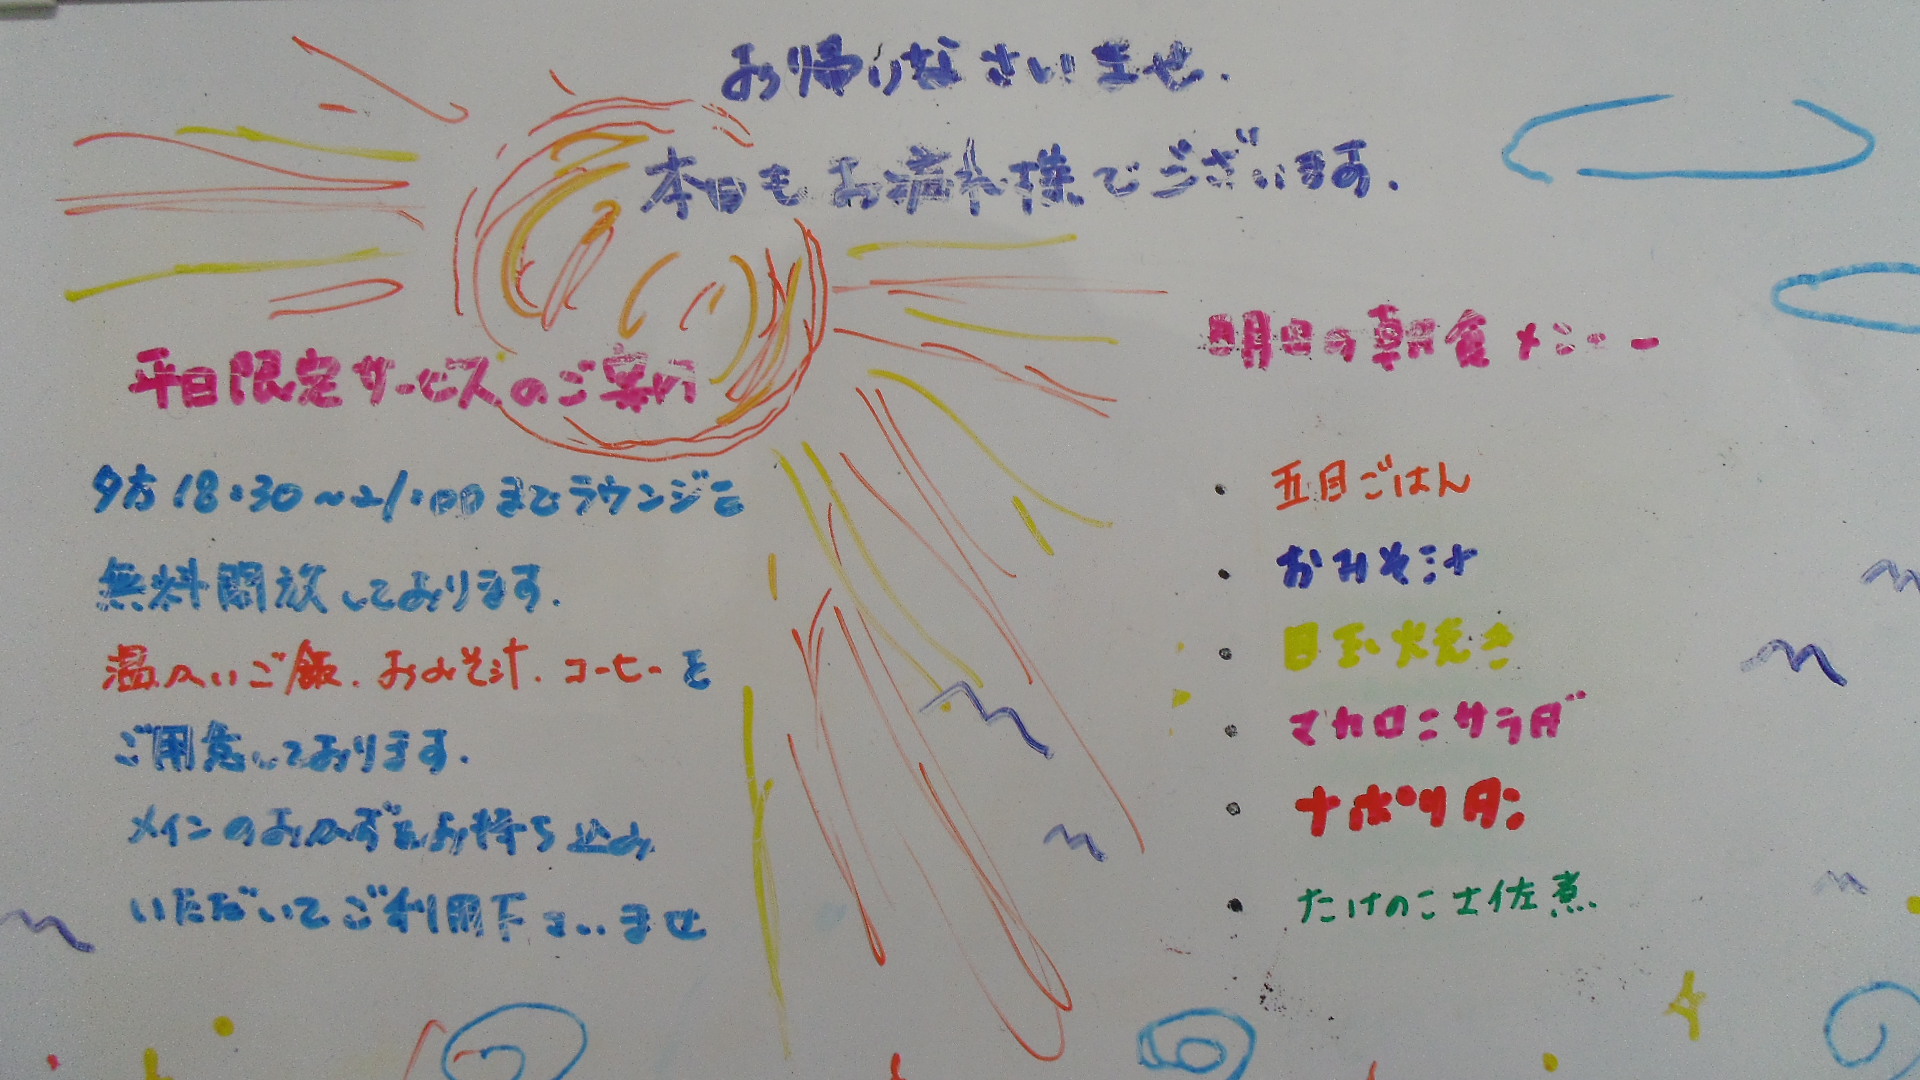 お帰りなさいませ.
本日もお疲れ様でございます.
平日限定サービスのご案内
夕方18:30～21:00までラウンジを
無料開放しております.
温かいご飯.おみそ汁.コーヒーを
ご用意しております.
メインのおかずをお持ち込み
いただいてご利用下さいませ
明日の朝食メニュー
・五目ごはん
・おみそ汁
・目玉焼き
・マカロニサラダ
・ナポリタン
・たけのこ土佐煮.